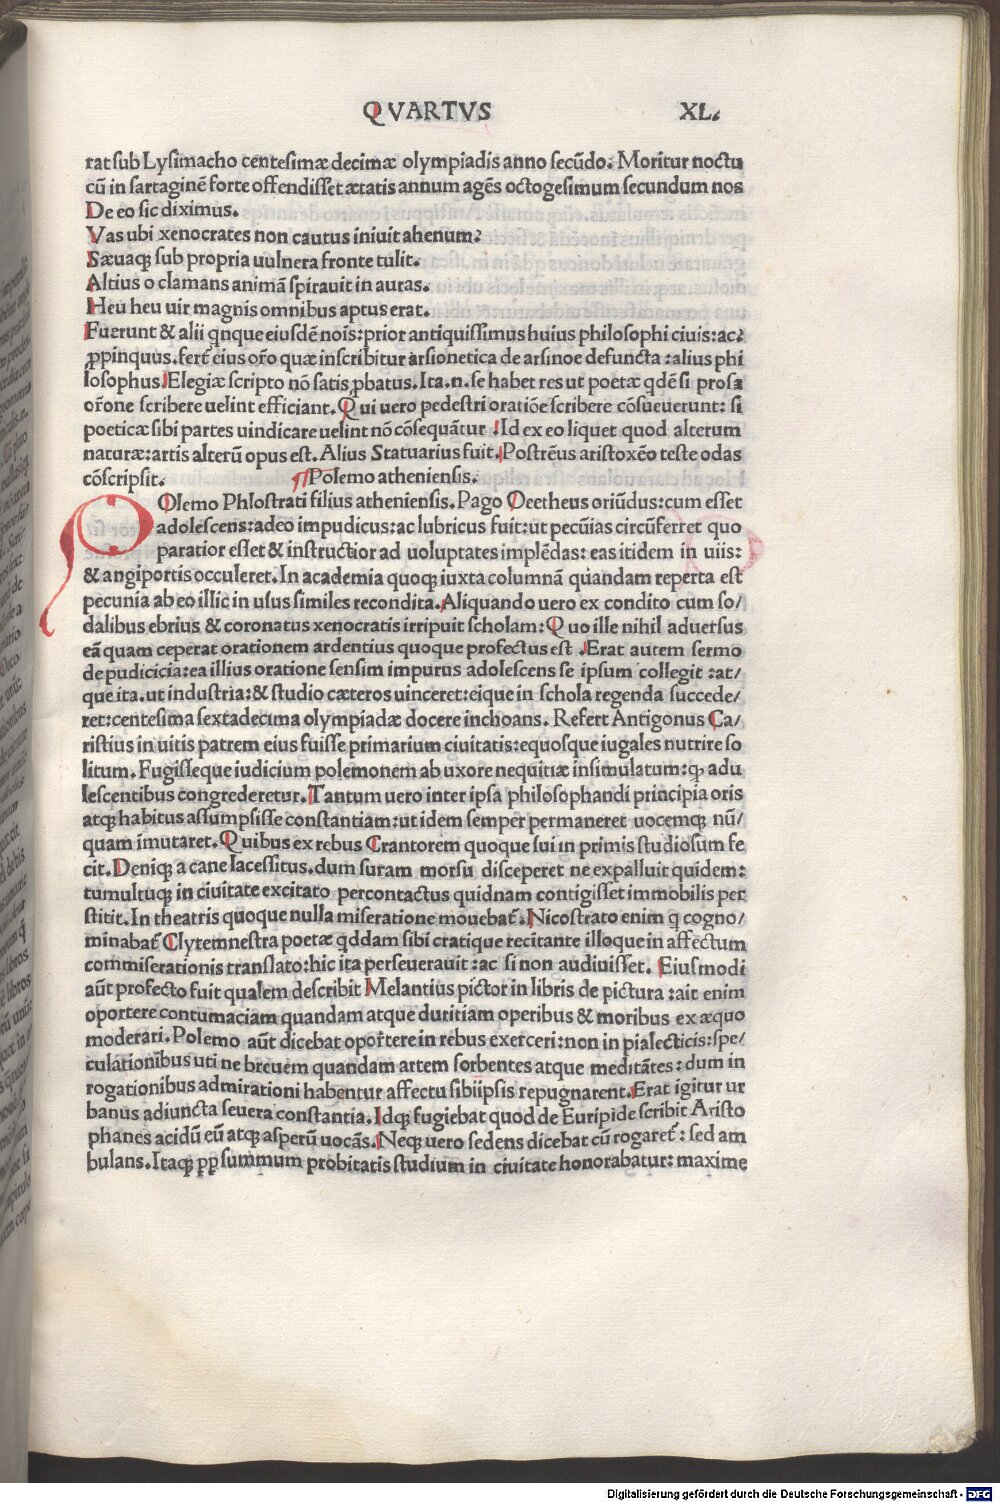 QVARTVS XL.
rat sub Lysimacho centesimæ decimæ olympiadis anno secūdo. Moritur noctu
cū in sartaginē forte offendisset ætatis annum agēs octogesimum secundum nos
De eo sic diximus.
Vas ubi xenocrates non cautus iniuit ahenum?
Sæuaqȝ sub propria uulnera fronte tulit.
Altius o clamans animā spirauit in auras.
Heu heu uir magnis omnibus aptus erat.
Fuerunt & alii qnque eiusdē nois: prior antiquissimus huius philosophi ciuis: ac:
ꝓpinquus. fert eius oro quæ inscribitur arsionetica de arsinoe defuncta: alius phi
losophus Elegiæ scripto nō satis ꝓbatus. Ita.n. se habet res ut poetæ qdē si prosa
orone scribere uelint efficiant. Qui uero pedestri oratiōe scribere cōsueuerunt: si
poeticæ sibi partes uindicare uelint nō cōsequātur. Id ex eo liquet quod alterum
naturæ: artis alterū opus est. Alius Statuarius fuit. Postrēus aristoxēo teste odas
cōscripsit. Polemo atheniensis.
POlemo Phlostrati filius atheniensis. Pago Oeetheus oriūdus: cum esset
adolescens: adeo impudicus: ac lubricus fuit: ut pecūias circūferret quo
paratior esset & instructior ad uoluptates implēdas: eas itidem in uiis:
& angiportis occuleret. In academia quoqȝ iuxta columnā quandam reperta est
pecunia ab eo illic in usus similes recondita. Aliquando uero ex condito cum so/
dalibus ebrius & coronatus xenocratis irripuit scholam: Quo ille nihil aduersus
eā quam ceperat orationem ardentius quoque profectus est. Erat autem sermo
de pudicicia: ea illius oratione sensim impurus adolescens se ipsum collegit: at/
que ita. ut industria: & studio cæteros uinceret: eique in schola regenda succede/
ret: centesima sextadecima olympiadæ docere inchoans. Refert Antigonus Ca/
ristius in uitis patrem eius fuisse primarium ciuitatis: equosque iugales nutrire so
litum. Fugisseque iudicium polemonem ab uxore nequitiæ insimulatum: qȝ adu
lescentibus congrederetur. Tantum uero inter ipsa philosophandi principia oris
atqȝ habitus assumpsisse constantiam: ut idem semper permaneret uocemqȝ nū/
quam īmutaret. Quibus ex rebus Crantorem quoque sui in primis studiosum fe
cit. Deniqȝ a cane lacessitus. dum suram morsu disceperet ne expalluit quidem:
tumultuqȝ in ciuitate excitato percontactus quidnam contigisset immobilis per
stitit. In theatris quoque nulla miseratione mouebat. Nicostrato enim q cogno/
minabat Clytemnestra poetæ qddam sibi cratique recitante illoque in affectum
commiserationis translato: hic ita perseuerauit: ac si non audiuisset. Eiusmodi
aūt profecto fuit qualem describit Melantius pictor in libris de pictura: ait enim
oportere contumaciam quandam atque duritiam operibus & moribus ex æquo
moderari. Polemo aūt dicebat oportere in rebus exerceri: non in pialecticis: spe/
culationibus uti ne breuem quandam artem sorbentes atque meditātes: dum in
rogationibus admirationi habentur affectu sibiipsis repugnarent. Erat igitur ur
banus adiuncta seuera constantia. Idqȝ fugiebat quod de Euripide scribit Aristo
phanes acidū eū atqȝ asperū uocās. Neqȝ uero sedens dicebat cū rogaret: sed am
bulans. Itaqȝ ꝓp summum probitatis studium in ciuitate honorabatur: maxime
Digitalisierung gefördert durch die Deutsche Forschungsgemeinschaft - DFG